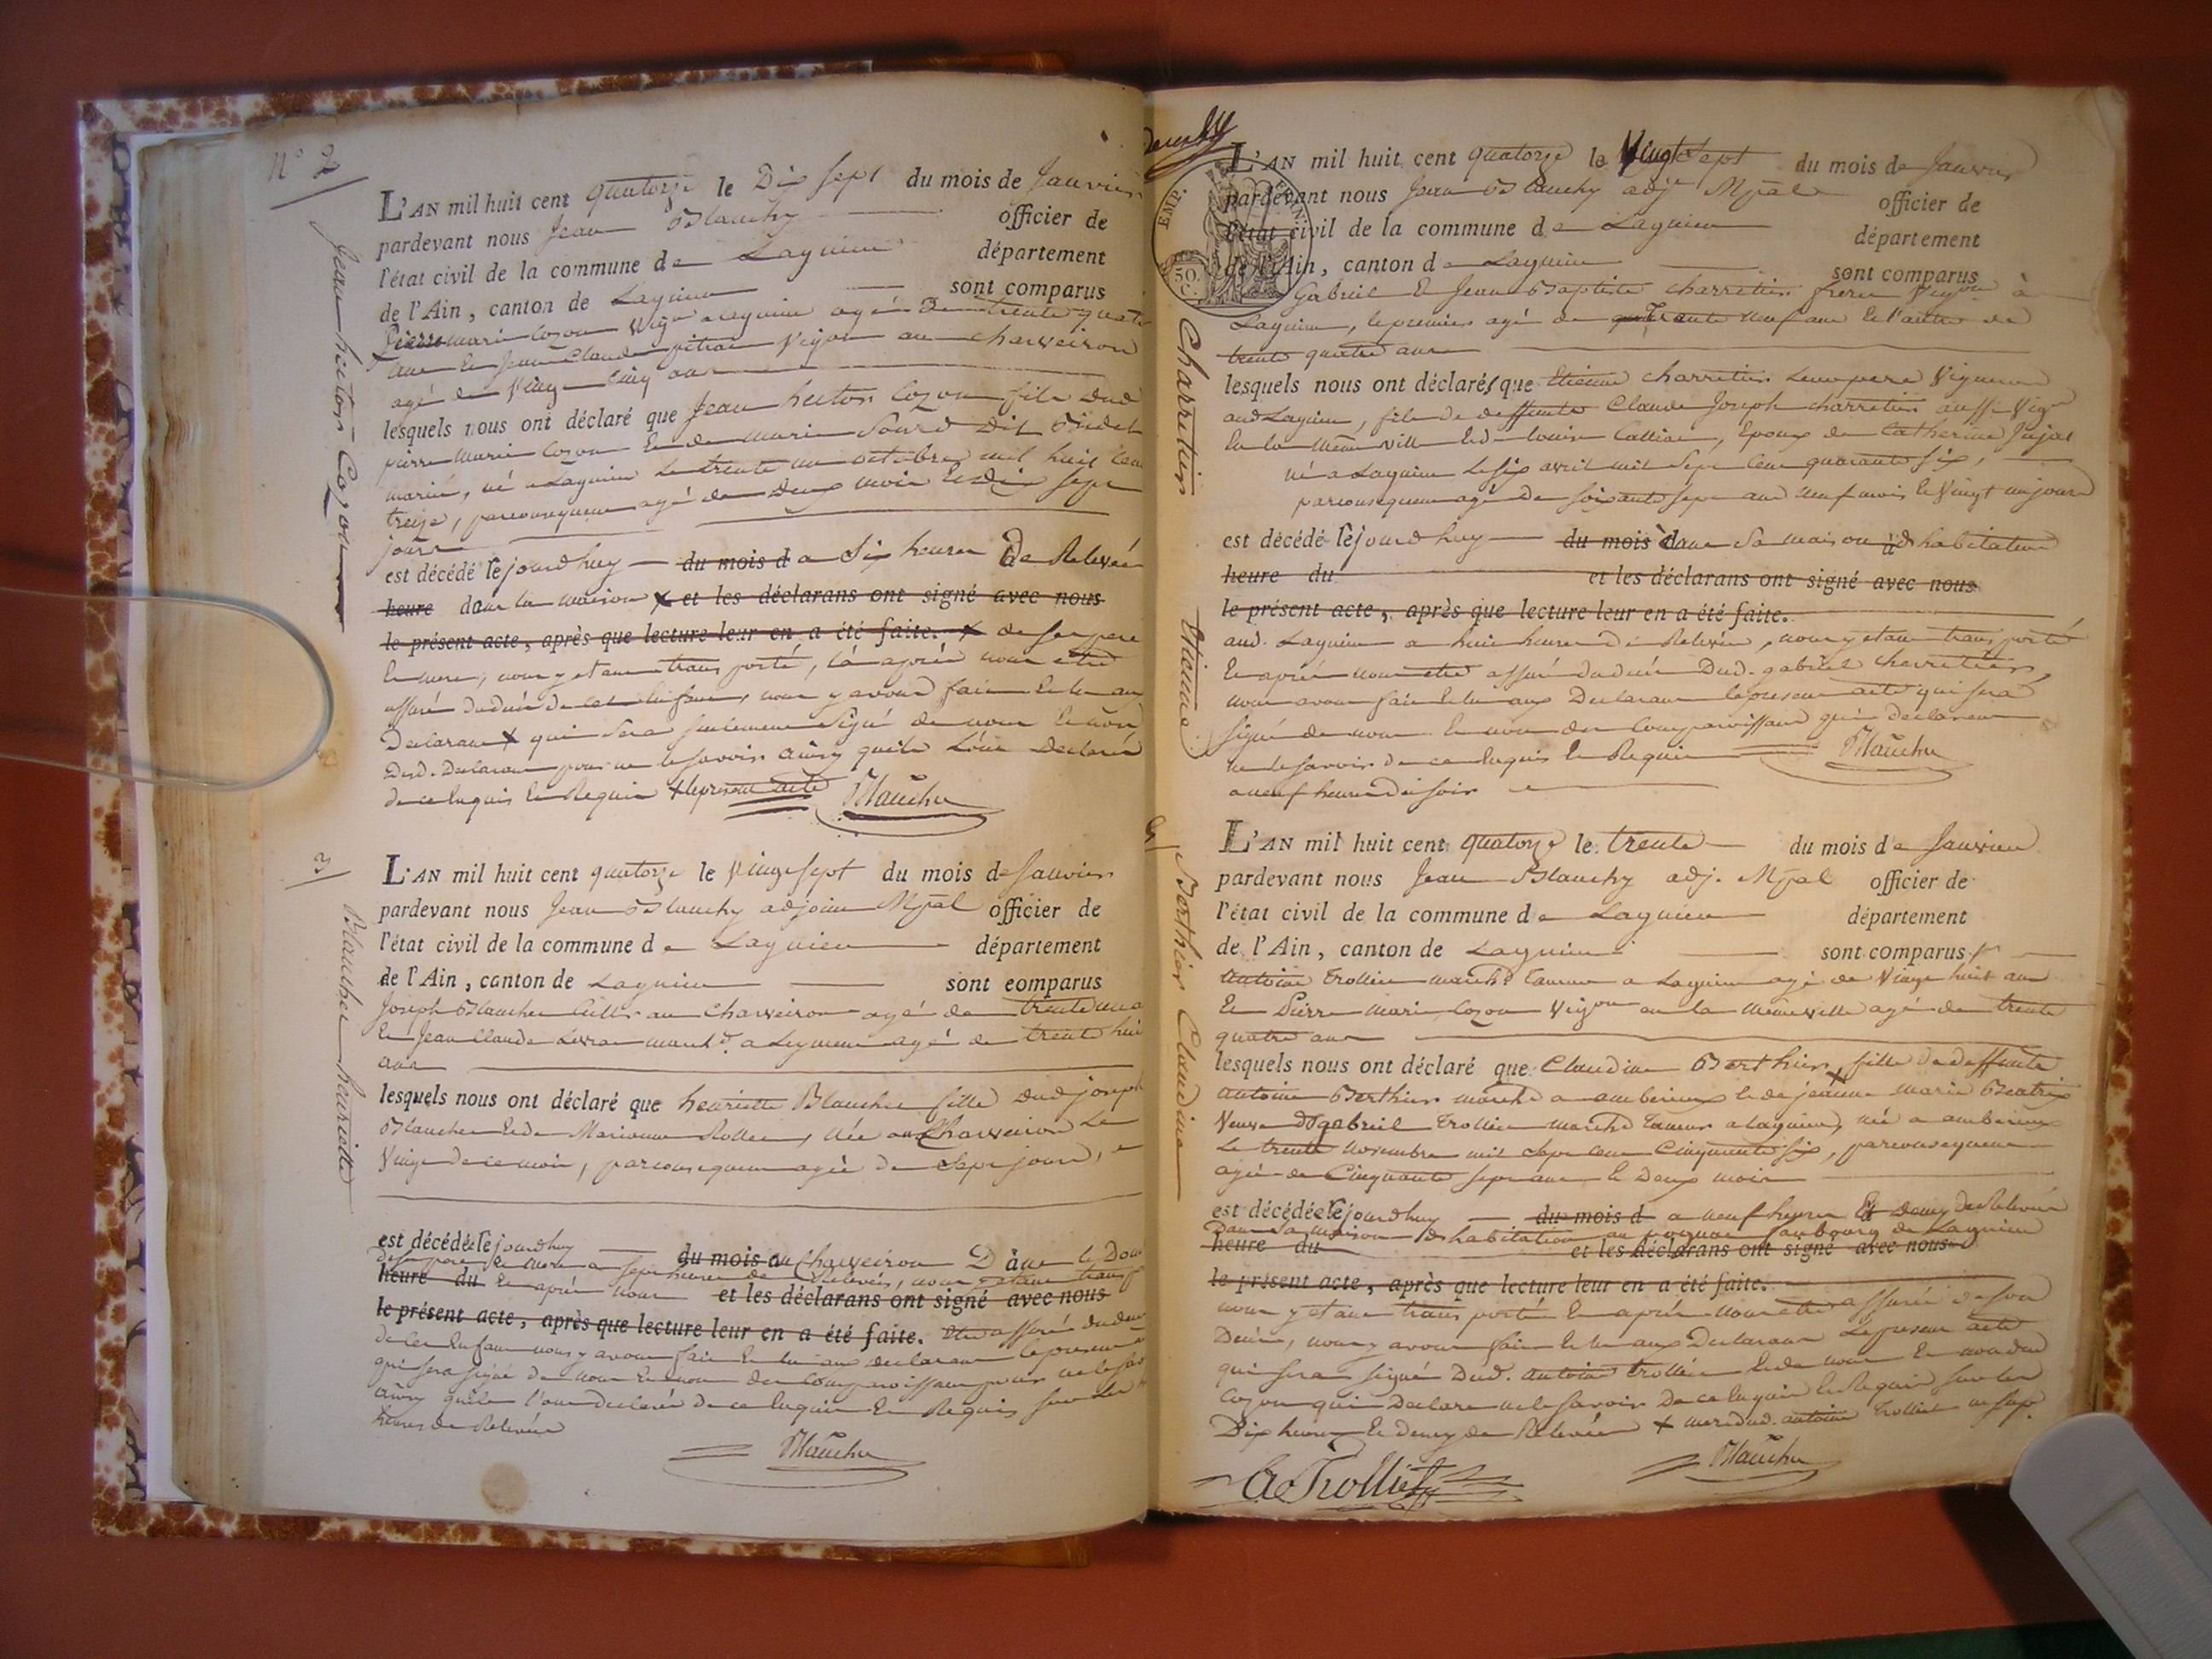 N° 2
Jean hector Cozon
L'AN mil huit cent quatorze le Dix sept du mois de Janvier
pardevant nous Jean Blanchy officier de
l'état civil de la commune de Lagnieu département
de l'Ain, canton de Lagnieu sont comparus
Pierre marie Cozon Vign a Lagnieu agé De trente quatre
ans et Jean Claude Vigon au charveiron
agé de Vingt Cinq ans
lesquels nous ont déclaré que Jean hector Cozon fils Dud
pierre Marie Cozon et de marie Sourd Dit
mariés, né a Lagnieu Le trente un octobre mil huit Cent
treize, parconsequent agé de Deux mois et Dix sept
jours
est décédé Cejourdhuy du mois d a Six heures De Relevée
heure dans la maison x et les déclarans ont signé avec nous
le présent acte, après que lecture leur en a été faite. x de Ses pere
et mere, nous y etant transporté, là après nous etre
assuré dudécé de cet Enfant, nous y avons fait et lu aux
Declarans x qui Sera seulement Signé de nous et non
Desd. Declarans pour ne le savoir ainsy quils L'ont Declaré
de ce Enquis et Requis x le present acte Blanchy
3
Blancher henriette
L'AN mil huit cent quatorze le Vingt sept du mois de Janvier
pardevant nous Jean Blanchy adjoint Mpal officier de
l'état civil de la commune de Lagnieu département
de l'Ain, canton de Lagnieu sont comparus
Joseph Blancher Cultr au Charveiron agé de trente
et Jean Claude marchd. a agé de trente huit
ans
lesquels nous ont déclaré que henriette Blancher fille Dud joseph
Blancher et de Marianne Rollet, Née au Charveiron Le
Vingt de ce mois, parconsequent agée De Sept jours,
est décédée Cejourdhuy du mois au Charveiron Dans le Dom
de Ses pere et mere a sept heures de Relevée, nous y etant transp
heure du et après nous et les déclarans ont signé avec nous
le présent acte, après que lecture leur en a été faite. etre assuré du decé
de cet Enfant nous y avons fait et lu aux declarans le present
qui sera signé de nous et non des Comparoissans pour ne le savoir
ainsy quils l'ont declaré de ce Enquis et Requis sur les
heures de Relevée
Blanchy
EMP.
50.
Charretier Etienne
L'AN mil huit cent quatorze le Vingt Sept du mois de Janvier
pardevant nous Jean Blanchy adjt Mpal officier de
l'état civil de la commune de Lagnieu département
de l'Ain, canton de Lagnieu sont comparus
Gabriel et Jean Baptiste charretier freres Vigons à
Lagnieu, le premier agé de Trente neuf ans et l'autre de
trente quatre ans
lesquels nous ont déclarés que Etienne charretier Leur pere Vigneron
aud Lagnieu, fils de deffunts Claude Joseph charretier aussi Vigr
en la même ville et de louise Calliat, Epoux de Catherine Jujat
né a Lagnieu Le Six avril mil Sept Cent quarante Six,
parconsequent agé de soixante sept ans neuf mois et Vingt un jours
est décédé Cejourdhuy du mois dans Sa maison d'habitation
heure du et les déclarans ont signé avec nous
le présent acte, après que lecture leur en a été faite.
aud. Lagnieu a huit heures de Relevée, nous y etant transporté
et après nous etre assuré dudécé Dud. gabriel charretier,
nous avons fait et lu aux Declarans le present acte qui sera
signé de nous et non des Comparoissans qui declarent
ne le savoir de ce Enquis et Requis Blanchy
a neuf heures du soir
Berthier Claudine
L'AN mil huit cent quatorze le trente du mois de Janvier
pardevant nous Jean Blanchy adj. Mpal officier de
l'état civil de la commune de Lagnieu département
de l'Ain, canton de Lagnieu sont comparus
Antoine trolliet marchd Tanneur a Lagnieu agé de Vingt huit ans
et Pierre Marie Cozon Vigon en la même ville agé de trente
quatre ans
lesquels nous ont déclaré que Claudine Berthier, fille de deffunts
antoine Berthier marchd a amberieux et de jeanne marie Beatrix
Veuve De gabriel trolliet marchd Tanneur a Lagnieu, née a amberieux
Le trente Novembre mil Sept Cent Cinquante six, parconsequent
agée de Cinquante sept ans et Deux mois
est décédée Cejourdhuy du mois d a neuf heures et Demy De Relevée
Dans Sa maison d'habitation au faubourg de Lagnieu
heure du et les déclarans ont signé avec nous
le présent acte, après que lecture leur en a été faite.
nous y etant transporté et après nous etre assuré de son
Décés, nous y avons fait et lu aux Declarans Le present acte
qui sera signé Dud. antoine trolliet et de nous et non dud
Cozon qui Declare ne le savoir De ce Enquis et Requis sur les
Dix heures et Demy de Relevée x mere dud. antoine trolliet
A Trolliet Blanchy